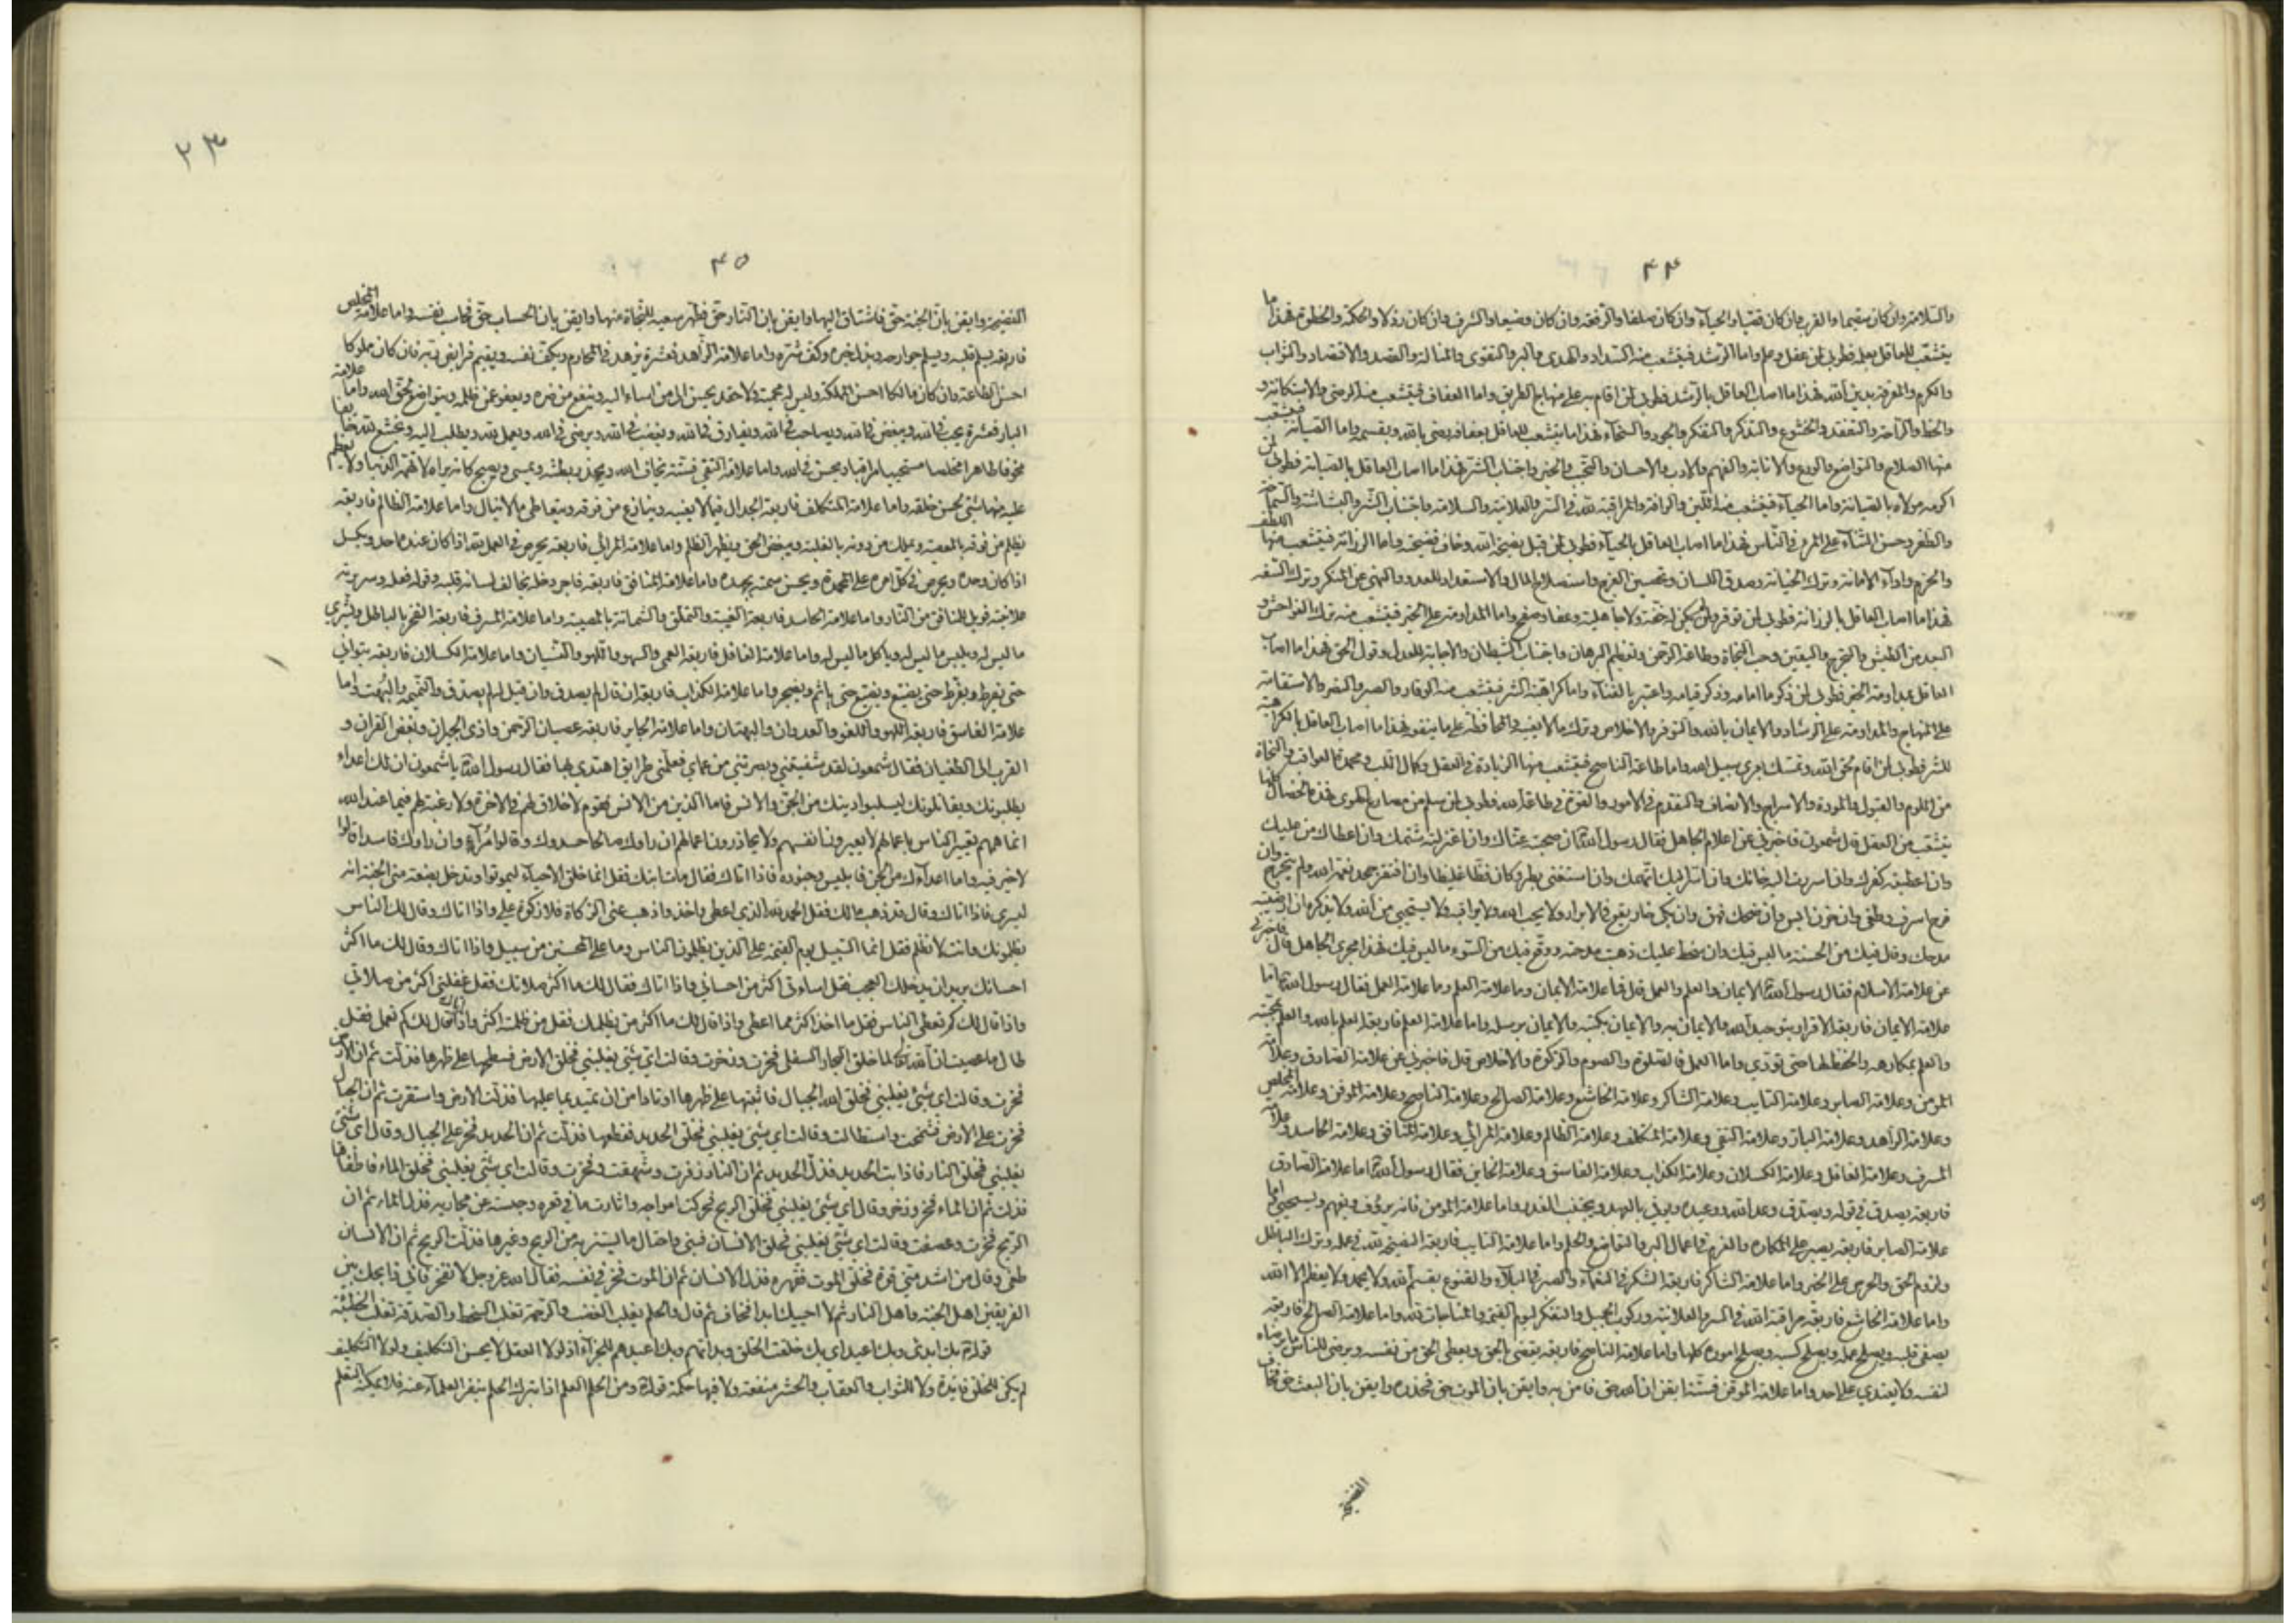 ٤٤
والسلامة وان كان سقيما والقرب وان كان قصيا والحياء وان كان صلفا والرفعة وان كان وضيعا والشرف وان كان رذلا والحكمة والحظوة فهذا ما
يتشعب للعاقل بعلمه فطوبى لمن عقل وعلم واما الرشد فيتشعب منه السداد والهدى والبر والتقوى والمنالة والقصد والاقتصاد والثواب
والكرم والمعرفة بدين الله فهذا ما اصاب العاقل بالرشد فطوبى لمن اقام به على منهاج الطريق واما العفاف فيتشعب منه الرضى والاستكانة و
والحظ والراحة والتفقد والخشوع والتذكر والتفكر والجود والسخاء فهذا ما يتشعب للعاقل بعفافه رضى بالله وبقسمه واما الصيانة فيتشعب
منها الصلاح والتواضع والورع والانابة والفهم والادب والاحسان والتحبب والخير واجتناب الشر فهذا ما اصاب العاقل بالصيانة فطوبى لمن
اكرمه مولاه بالصيانة واما الحياء فيتشعب منه اللين والرافة والمراقبة لله في السر والعلانية والسلامة واجتناب الشر والبشاشة والسماحة
والظفر وحسن الثناء على المرء في الناس فهذا ما اصاب العاقل بالحياء فطوبى لمن قبل نصيحة الله وخاف فضيحته واما الرزانة فيتشعب منها اللطف
والحزم واداء الامانة وترك الخيانة وصدق اللسان وتحصين الفرج واستصلاح المال والاستعداد للعدو والنهي عن المنكر وترك السفه
فهذا ما اصاب العاقل بالرزانة فطوبى لمن توقر ولمن لم يكن له خفة ولا جاهلية وعفا وصفح واما المداومة على الخير فيتشعب منه ترك الفواحش و
البعد من الطيش والتحرج واليقين وحب النجاة وطاعة الرحمن وتعظيم البرهان واجتناب الشيطان والاجابة للعدل وقول الحق فهذا ما اصاب
العاقل بمداومة الخير فطوبى لمن ذكر ما امامه وذكر قيامه واعتبر بالفناء واما كراهية الشر فيتشعب منه الوقار والصبر والنصر والاستقامة
على المنهاج والمداومة على الرشاد والايمان بالله والتوفر والاخلاص وترك ما لا يعنيه والمحافظة على ما ينفعه فهذا ما اصاب العاقل بالكراهية
للشر فطوبى لمن اقام بحق الله وتمسك بعرى سبيل الله واما طاعة الناصح فيتشعب منها الزيادة في العقل وكمال اللب ومحمدة العواقب والنجاة
من اللوم والقبول والمودة والاسراج والانصاف والتقدم في الامور والقوة في طاعة الله فطوبى لمن سلم من مصارع الهوى فهذه الخصال كلها
يتشعب من العقل قال شمعون فاخبرني عن اعلام الجاهل فقال رسول الله ص ان صحبته عناك وان اعتزلته شتمك وان اعطاك من عليك
وان اعطيته كفرك وان اسررت اليه خانك وان اسر اليك اتهمك وان استغنى بطر وكان فظا غليظا وان افتقر جحد نعمة الله ولم يتحرج وان
فرح اسرف وطغى وان حزن ايس وان ضحك فهق وان بكى خار يقع في الابرار ولا يحب الله ولا يراقبه ولا يستحيي من الله ولا يذكره ان ارضيته
مدحك وقال فيك من الحسنة ما ليس فيك وان سخط عليك ذهبت مدحته ووقع فيك من السوء ما ليس فيك فهذا مجرى الجاهل قال فاخبرني
عن علامة الاسلام فقال رسول الله ص الايمان والعلم والعمل قال فما علامة الايمان وما علامة العلم وما علامة العمل فقال رسول الله ص اما
علامة الايمان فاربعة الاقرار بتوحيد الله والايمان به والايمان بكتبه والايمان برسله واما علامة العلم فاربعة العلم بالله والعلم بمحبته
والعلم بمكارهه والحفظ لها حتى تؤدي واما العمل فالصلوة والصوم والزكوة والاخلاص قال فاخبرني عن علامة الصادق وعلامة
المؤمن وعلامة الصابر وعلامة التايب وعلامة الشاكر وعلامة الخاشع وعلامة الصالح وعلامة الناصح وعلامة الموقن وعلامة المخلص
وعلامة الزاهد وعلامة البار وعلامة التقي وعلامة المتكلف وعلامة الظالم وعلامة المرائي وعلامة المنافق وعلامة الحاسد وعلامة
المسرف وعلامة الغافل وعلامة الكسلان وعلامة الكذاب وعلامة الفاسق وعلامة الخاين فقال رسول الله ص اما علامة الصادق
فاربعة يصدق في قوله ويصدق وعد الله ووعيده ويوفي بالعهد ويجتنب الغدر واما علامة المؤمن فانه يرؤف ويفهم ويستحيي اما
علامة الصابر فاربعة يصبر على المكاره والعزم في اعمال البر والتواضع والحلم واما علامة التايب فاربعة النصيحة لله في عمله وترك الباطل
ولزوم الحق والحرص على الخير واما علامة الشاكر فاربعة الشكر في النعماء والصبر في البلاء والقنوع بقسم الله ولا يحمد ولا يعظم الا الله
واما علامة الخاشع فاربعة مراقبة الله في السر والعلانية وركوب الجميل والتفكر ليوم القيمة والمناجات لله واما علامة الصالح فاربعة
يصفي قلبه ويصلح عمله ويصلح كسبه ويصلح اموره كلها واما علامة الناصح فاربعة يقضي بالحق ويعطي الحق من نفسه ويرضى للناس ما يرضاه
لنفسه ولا يعتدي على احد واما علامة الموقن فستة ايقن ان الله حق فامن به وايقن بان الموت حق فحذره وايقن بان البعث حق فخاف
الفضيحة
٢٣
٤٥
الفضيحة وايقن بان الجنة حق فاشتاق اليها وايقن بان النار حق فظهر سعيه للنجاة منها وايقن بان الحساب حق فحاسب نفسه واما علامة المخلص
فاربعة يسلم قلبه ويسلم جوارحه وبذل خيره وكف شره واما علامة الزاهد فعشرة يزهد في المحارم ويكف نفسه ويقيم فرايض ربه فان كان مملوكا
احسن الطاعة وان كان مالكا احسن المملكة وليس له محمية ولا حقد يحسن الى من اساء اليه وينفع من ضره ويعفو عمن ظلمه ويتواضع لحق الله واما علامة
البار فعشرة يحب في الله ويبغض في الله ويصاحب في الله ويفارق في الله ويغضب في الله ويرضى في الله ويعمل لله ويطلب اليه ويخشع لله خائفا
مخوفا طاهرا مخلصا مستحييا مراقبا ويحسن في الله واما علامة التقي فستة يخاف الله ويحذر بطشه ويمسي ويصبح كانه يراه لا تهمه الدنيا ولا يعظم
عليه منها شيء لحسن خلقه واما علامة المتكلف فاربعة الجدال فيما لا يعنيه وينازع من فوقه ويتعاطى ما لا ينال واما علامة الظالم فاربعة
يظلم من فوقه بالمعصية ويملك من دونه بالغلبة ويبغض الحق ويظهر الظلم واما علامة المرائي فاربعة يحرص في العمل لله اذا كان عنده احد ويكسل
اذا كان وحده ويحرص في كل امره على المحمدة ويحسن سمته بجهده واما علامة المنافق فاربعة فاجر دخله يخالف لسانه قلبه وقوله فعله وسريرته
علانيته فويل للمنافق من النار واما علامة الحاسد فاربعة الغيبة والتملق والشماتة بالمصيبة واما علامة المسرف فاربعة الفخر بالباطل ويشتري
ما ليس له ويلبس ما ليس له وياكل ما ليس له واما علامة الغافل فاربعة العمى والسهو واللهو والنسيان واما علامة الكسلان فاربعة يتوانى
حتى يفرط ويفرط حتى يضيع ويضيع حتى ياثم ويضجر واما علامة الكذاب فاربعة ان قال لم يصدق وان قيل له لم يصدق والنميمة والبهت واما
علامة الفاسق فاربعة اللهو واللغو والعدوان والبهتان واما علامة الخاين فاربعة عصيان الرحمن واذى الجيران وبغض القران و
القرب الى الطغيان فقال شمعون لقد شفيتني وبصرتني من عماي فعلمني طرايق اهتدي بها فقال رسول الله ص يا شمعون ان لك اعداء
يطلبونك ويقاتلونك ليسلبوا دينك من الجن والانس فاما الذين من الانس فقوم لا خلاق لهم في الاخرة ولا رغبة لهم فيما عند الله
انما همهم تعيير الناس باعمالهم لا يعيرون انفسهم ولا يحاذرون اعمالهم ان راوك صالحا حسدوك وقالوا مراء وان راوك فاسدا قالوا
لا خير فيه واما اعداؤك من الجن فابليس وجنوده فاذا اتاك فقال مات ابنك فقل انما خلق الاحياء ليموتوا وتدخل بضعة مني الجنة انه
ليسري فاذا اتاك وقال قد ذهب مالك فقل الحمد لله الذي اعطى واخذ واذهب عني الزكاة فلا زكوة علي واذا اتاك وقال لك الناس
يظلمونك وانت لا تظلم فقل انما السبيل يوم القيمة على الذين يظلمون الناس وما على المحسنين من سبيل واذا اتاك وقال لك ما اكثر
احسانك يريد ان يدخلك العجب فقل اساءتي اكثر من احساني واذا اتاك فقال لك ما اكثر صلاتك فقل غفلتي اكثر من صلاتي
واذا قال لك كم تعطي الناس فقل ما اخذ اكثر مما اعطي واذا قال لك ما اكثر من يظلمك فقل من ظلمته اكثر واذا اتاك فقال لك كم تعمل فقل
طال ما عصيت ان الله تعالى لما خلق البحار السفلى فخرت وزخرت وقالت اي شيء يغلبني فخلق الارض فسطحها على ظهرها فذلت ثم ان الارض
فخرت وقالت اي شيء يغلبني فخلق الله الجبال فاثبتها على ظهرها اوتادا من ان تميد بما عليها فذلت الارض واستقرت ثم ان الجبال
فخرت على الارض فشمخت واستطالت وقالت اي شيء يغلبني فخلق الحديد فقطعها فذلت ثم ان الحديد فخر على الجبال وقال اي شيء
يغلبني فخلق النار فاذابت الحديد فذل الحديد ثم ان النار زفرت وشهقت وفخرت وقالت اي شيء يغلبني فخلق الماء فاطفاها
فذلت ثم ان الماء فخر وزخر وقال اي شيء يغلبني فخلق الريح فحركت امواجه واثارت ما في قعره وحبسته عن مجاريه فذل الماء ثم ان
الريح فخرت وعصفت وقالت اي شيء يغلبني فخلق الانسان فبنى واحتال ما يستتر به من الريح وغيرها فذلت الريح ثم ان الانسان
طغى وقال من اشد مني قوة فخلق الموت فقهره فذل الانسان ثم ان الموت فخر في نفسه فقال الله عز وجل لا تفخر فاني ذابحك بين
الفريقين اهل الجنة واهل النار ثم لا احييك ابدا فخاف ثم قال والحلم يغلب الغضب والرحمة تغلب السخط والصدقة تغلب الخطيئة
قوله ص بك ابدئ وبك اعيد اي بك خلقت الخلق وبداتهم وبك اعيدهم للجزاء اذ لولا العقل لا يحسن التكليف ولولا التكليف
لم يكن للخلق فايدة ولا للثواب والعقاب والحشر منفعة ولا فيها حكمة قوله ص ومن الحلم العلم اذ بترك الحلم ينفر العلماء عنه فلا يمكنه التعلم